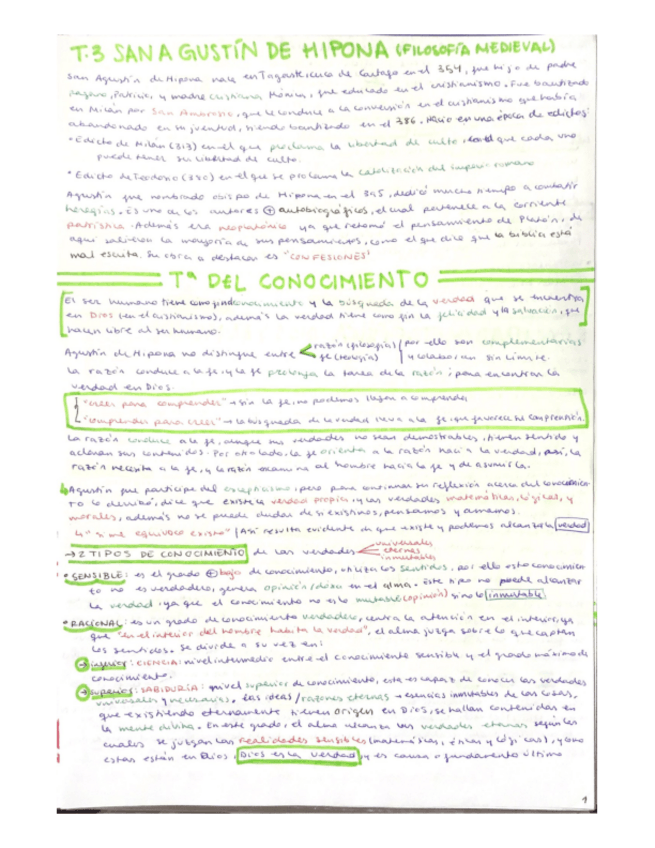 T.3 SAN AGUSTÍN DE HIPONA (FILOSOFÍA MEDIEVAL)
San Agustín de Hipona nace en Tagaste cerca de Cartago en el 354, fue hijo de padre
pagano, Patricio, y madre cristiana Mónica, fue educado en el cristianismo. Fue bautizado
en Milán por San Ambrosio, que le conduce a la conversión en el cristianismo que había
abandonado en su juventud, siendo bautizado en el 386. Nació en una época de edictos:
• Edicto de Milán (313) en el que proclama la libertad de culto, que cada uno
puede tener su libertad de culto.
• Edicto de Teodosio (380) en el que se proclama la catolización del imperio romano
Agustín fue nombrado obispo de Hipona en el 395, dedicó mucho tiempo a combatir
herejías. Es uno de los autores + autobiográficos, el cual pertenece a la corriente
patrística. Además era neoplatónico ya que retomó el pensamiento de Platón, de
aquí salieron la mayoría de sus pensamientos, como el que dice que la biblia está
mal escrita. Su obra a destacar es "CONFESIONES"
Tª DEL CONOCIMIENTO
El ser humano tiene como fin el conocimiento y la búsqueda de la verdad que se encuentra
en Dios (en el cristianismo), además la verdad tiene como fin la felicidad y la salvación, que
hacen libre al ser humano.
Agustín de Hipona no distingue entre razón (filosofía) fe (teología) por ello son complementarias y colaboran sin límite.
La razón conduce a la fe, y la fe prolonga la tarea de la razón; para encontrar la
verdad en Dios.
"creer para comprender" → sin la fe, no podemos llegar a comprender
"comprender para creer" → la búsqueda de la verdad lleva a la fe, que favorece su comprensión.
La razón conduce a la fe, aunque sus verdades no sean demostrables, tienen sentido y
aclaran sus contenidos. Por otro lado, la fe orienta a la razón hacia la verdad, así, la
razón necesita a la fe, y la razón encamina al hombre hacia la fe y de asumirla.
Agustín fue partícipe del escepticismo, pero para continuar su reflexión acerca del conocimien-
to lo derribó, dice que existe la verdad propia, y las verdades matemáticas, lógicas, y
morales, además no se puede dudar de si existimos, pensamos y amamos.
↳ "si me equivoco existo" / Así resulta evidente de que existe y podemos alcanzar la verdad
→ 2 TIPOS DE CONOCIMIENTO de las verdades universales eternas inmutables
• SENSIBLE: es el grado + bajo de conocimiento, utiliza los sentidos, por ello este conocimien-
to no es verdadero, genera opinión/doxa en el alma. Este tipo no puede alcanzar
la verdad, ya que el conocimiento no es lo mutable (opinión) sino lo inmutable
• RACIONAL: es un grado de conocimiento verdadero, centra la atención en el interior, ya
que "en el interior del hombre habita la verdad", el alma juzga sobre lo que captan
los sentidos. Se divide a su vez en:
→ inferior: CIENCIA: nivel intermedio entre el conocimiento sensible y el grado máximo de
conocimiento.
→ superior: SABIDURÍA: nivel superior de conocimiento, este es capaz de conocer las verdades
universales y necesarias. Las ideas / razones eternas → esencias inmutables de las cosas,
que existiendo eternamente tienen origen en Dios, se hallan contenidas en
la mente divina. En este grado, el alma alcanza las verdades eternas según las
cuales se juzgan las realidades sensibles (matemáticas, éticas y lógicas), y como
estas están en Dios, Dios es la verdad, y es causa o fundamento último
1